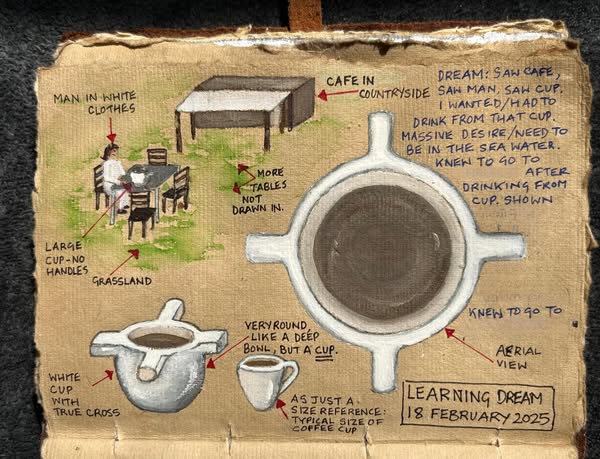 CAFE IN
COUNTRYSIDE
DREAM: SAW CAFE,
SAW MAN, SAW CUP.
I WANTED/HAD TO
DRINK FROM THAT CUP.
MASSIVE DESIRE/NEED TO
BE IN THE SEA WATER.
KNEW TO GO TO
AFTER
DRINKING FROM
CUP. SHOWN
MAN IN WHITE
CLOTHES
MORE
TABLES
NOT
DRAWN IN.
LARGE
CUP-NO
HANDLES
GRASSLAND
KNEW TO GO TO
VERY ROUND
LIKE A DEEP
BOWL, BUT A CUP.
AERIAL
VIEW
WHITE
CUP
WITH
TRUE CROSS
AS JUST A
SIZE REFERENCE:
TYPICAL SIZE OF
COFFEE CUP
LEARNING DREAM
18 FEBRUARY 2025